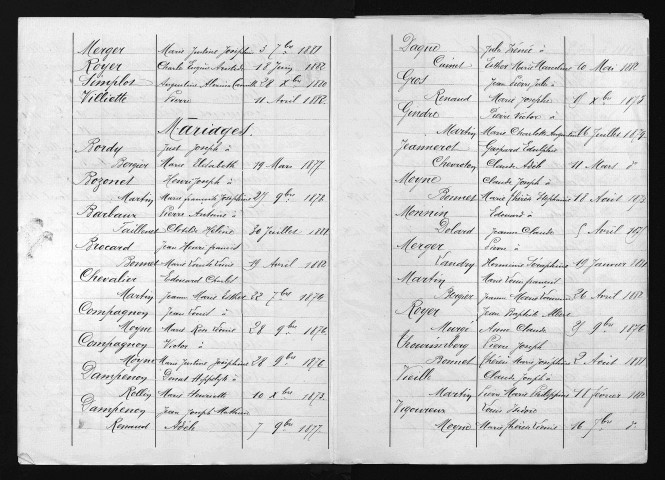 Merger Marie Justine Joséphine 3 7bre 1881
Royer Charle Eugène Aristide 18 Juin 1882
Simplot Augustine 28 Xbre 1880
Villiette Pierre 11 Avril 1882
Mariages.
Bordy Just Joseph à
Borgier Marie Elisabeth 19 Mars 1877
Bozonet Henri Joseph à
Martin Marie françoise Joséphine 27 9bre 1872
Barbaux Pierre Antoine à
Taillard Clotilde Hélène 30 Juillet 1881
Brocard Jean Henri francois
Bonnet Marie 19 Avril 1882
Chevalier Edouard
Martin Jeanne Marie Esther 22 7bre 1874
Compagnon Jean Louis à
Moyne Marie Rose 28 9bre 1876
Compagnon Victor à
Moyne Marie Justine Joséphine 28 9bre 1876
Dampenon Donat Hippolyte à
Rollin Marie Henriette 10 Xbre 1873
Dampenon Jean Joseph Mathieu
Renaud Adèle 7 9bre 1877
Dagne Jule Irénée à
Cuinet Esther Marie Marceline 10 Mai 1882
Gros Jean Pierre Jule à
Renaud Marie Josephe Xbre 1873
Gendre Pierre Victor à
Martin Marie Charlotte Augustine 16 Juillet 1874
Jeannerot Gaspard Edolphe
Chevalier Claude Adèle 11 Mars d°
Moyne Claude Joseph à
Bonnet Marie Thérèse Stéphanie 18 Août
Monnin Edouard à
Dolard Jeanne Claude 5 Avril
Merger Pierre à
Landry Hermine Séraphine 19 Janvier 1881
Martin Marie Louis francois
Borgier Jeanne Marie 26 Avril 1882
Royer Jean Baptiste
Mergé Anne Claude 27 9bre 1876
Pierre Joseph
Bonnet Thérèse Marie Joséphine 2 Août 1881
Vieille Claude Joseph à
Martin Marie Philippine 11 février 1882
Vigoureux Louis Isidore
Moyne Marie Thérèse 16 7bre d°